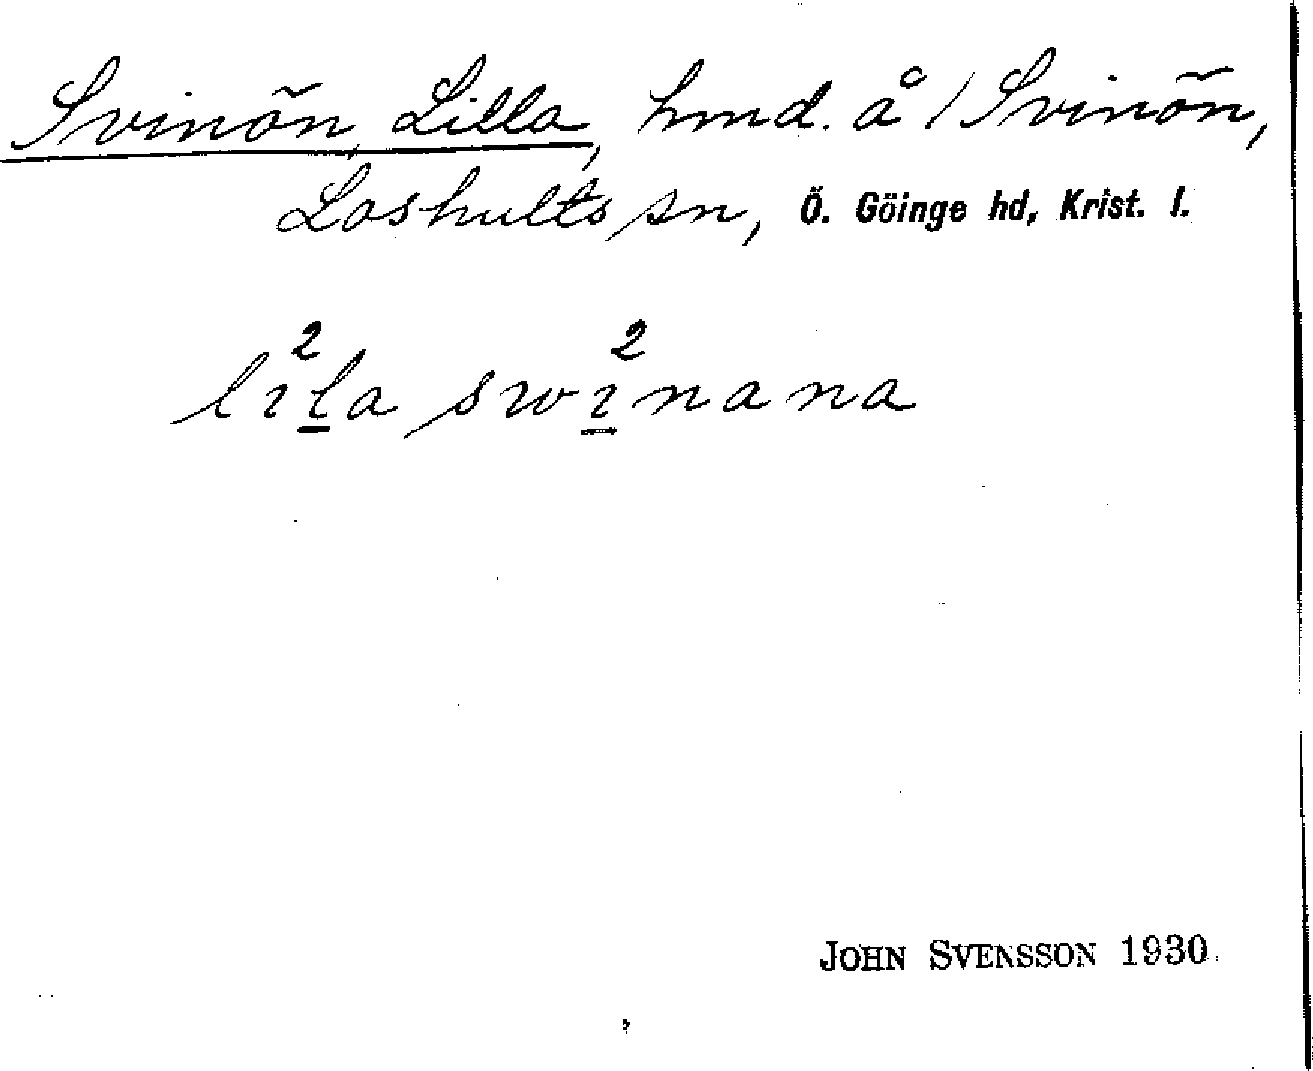 Svinön, Lilla, hmd. å / Svinön,
Loshults sn, Ö. Göinge hd, Krist. l.
lı²la swı²nana
JOHN SVENSSON 1930.